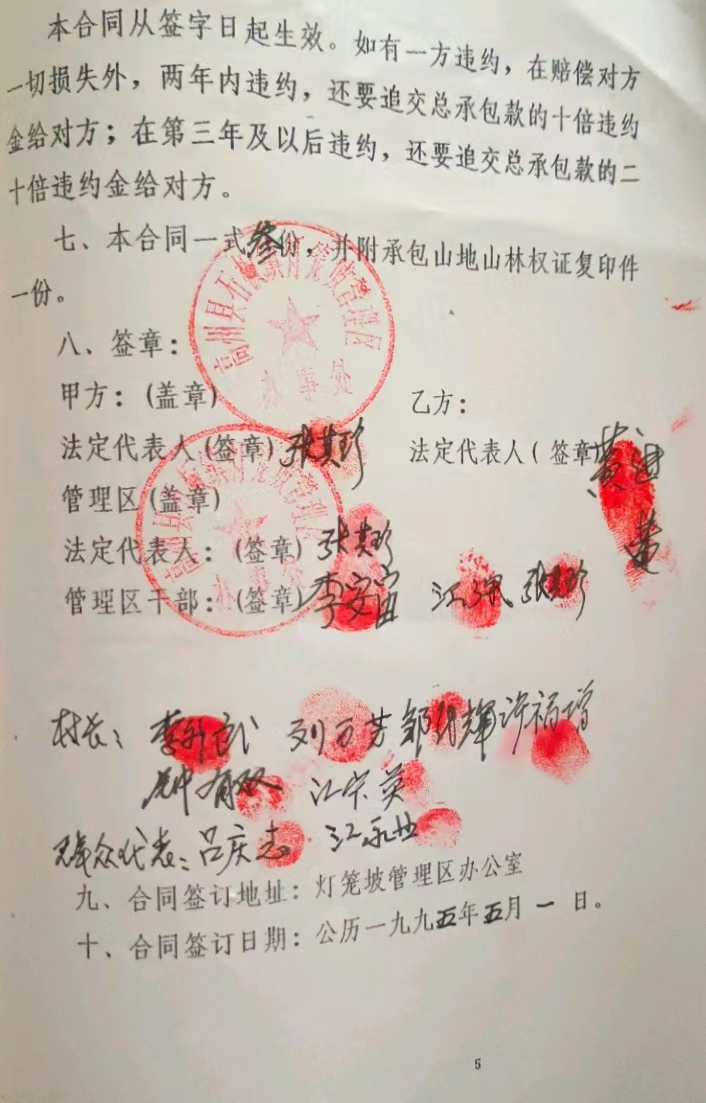 本合同从签字日起生效。如有一方违约，在赔偿对方
一切损失外，两年内违约，还要追交总承包款的十倍违约
金给对方；在第三年及以后违约，还要追交总承包款的二
十倍违约金给对方。
七、本合同一式叁份，并附承包山地山林权证复印件
一份。
八、签章：
甲方：(盖章) 乙方：
法定代表人(签章) 张其珍 法定代表人(签章 黄进
管理区(盖章)
法定代表人：(签章) 张其珍 黄
管理区干部：(签章) 李安宙 江 张其珍
村长： 李 刘万芳 邹 辉 许福增
钟有双 江宗英
群众代表：吕庆志 江永
九、合同签订地址：灯笼坡管理区办公室
十、合同签订日期：公历一九九五年五月一日。
5